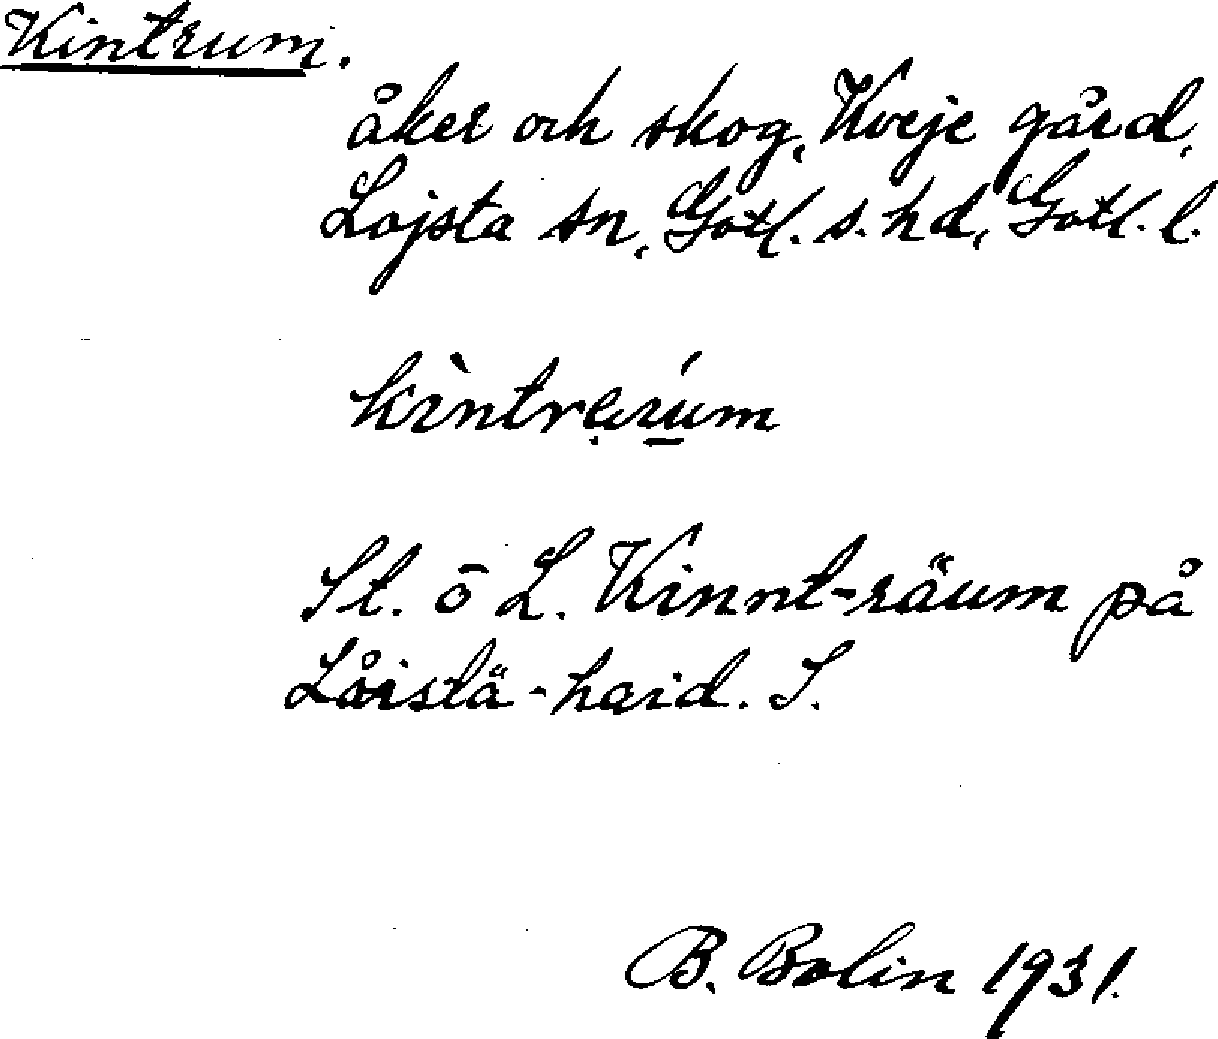 Kintrum.
åker och skog, Kveje gård,
Lojsta sn, Gotl. s. hd, Gotl. l.
St. ō L. Kinnt-räum på
Låistä-haid. S.
B. Bolin 1931.